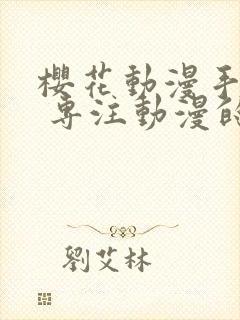 櫻花動漫手
專注動漫的
劉艾林